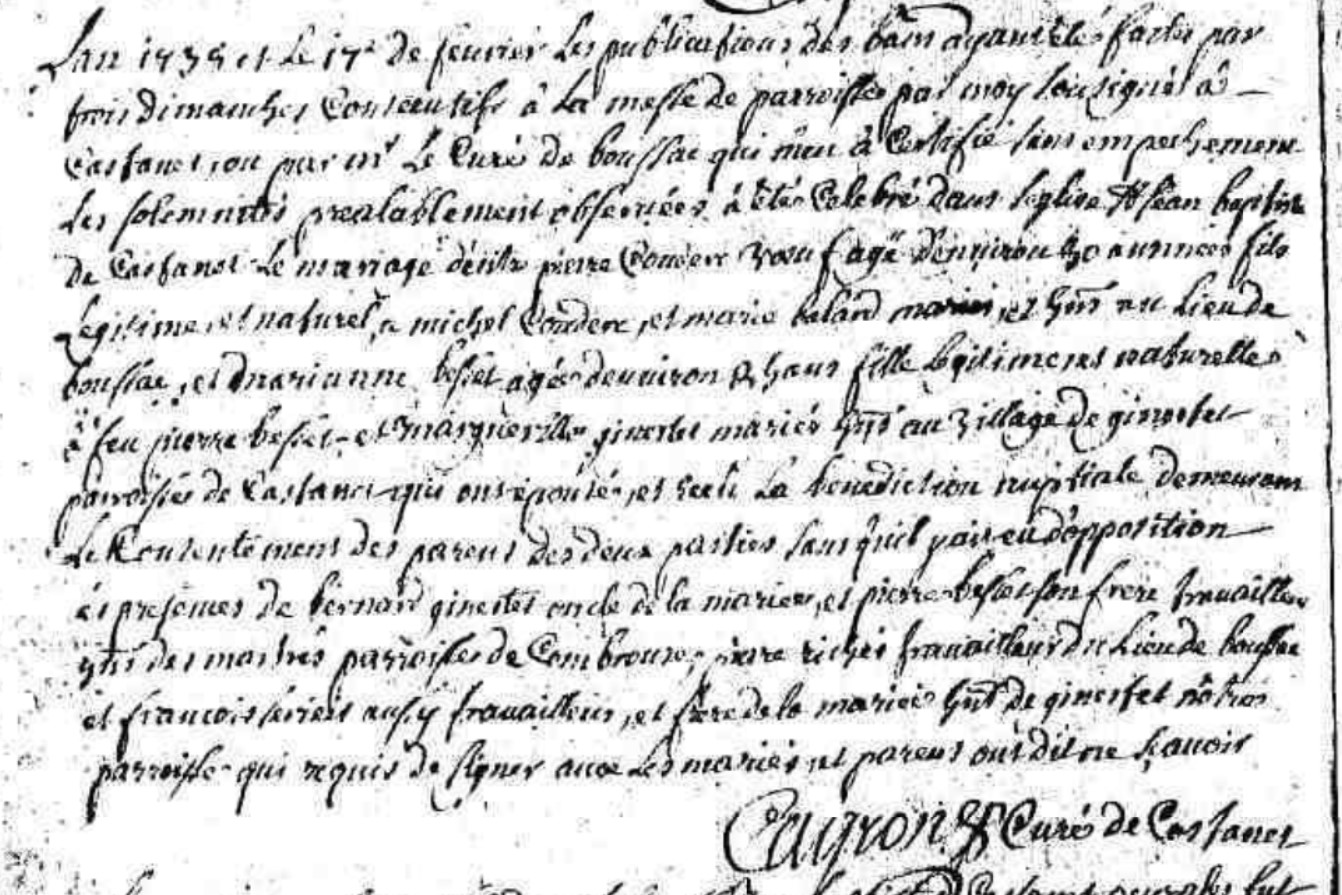 Lan 1735 et le 17e de fevrier les publications des bans ayant été faites par
trois dimanches consecutifs à la messe de parroisse par moy soussigné à
Castanet, ou par mr le Curé de boussac qui m'en à Certifié sans empechement
les solemnités prealablement observées, à été Celebré dans leglise St Jean baptiste
de Castanet le mariage dentre pierre Couderc veuf agé denviron annnées fils
legitime et naturel, a michel Couderc, et marie balard mariés, et hnts au lieu de
boussac, et marianne besset agée denviron ans fille legitime et naturelle
à feu pierre besset et margueritte ginestet mariés hnts au village de ginestet
parroisse de Castanet qui ont épousé, et receu la benediction nuptiale
le Consentement des parens des deux parties sans quil y ait eu d'opposition
és presences de bernard ginestet oncle de la mariée, et pierre besset son frere travailleur
hnts des parroisse de Combrouse, pierre travailleur du lieu de boussac
et francois aussy travailleur, et frere de la mariée hnt de ginestet
parroisse qui requis de signer avec les mariés et parens ont dit ne scavoir
Cayron Curé de Castanet